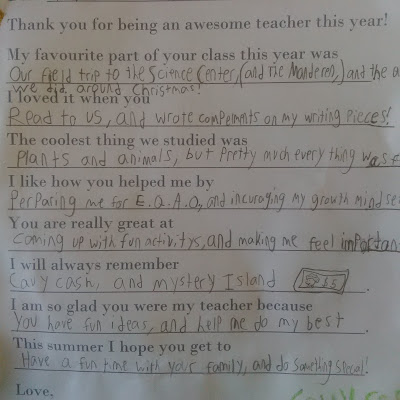 Thank you for being an awesome teacher this year!
My favourite part of your class this year was
Our field trip to the Science Center, (and the Manderen,) and the a
we did around Christmas!
I loved it when you
Read to us, and wrote compements on my writing pieces!
The coolest thing we studied was
Plants and animals, but pretty much every thing was f
I like how you helped me by
Perparing me for E.Q.A.O, and incuraging my growth mindse
You are really great at
Coming up with fun activitys, and making me feel importan
I will always remember
Cavy cash, and mystery Island
I am so glad you were my teacher because
You have fun ideas, and help me do my best
This summer I hope you get to
Have a fun time with your family, and do something special!
Love,